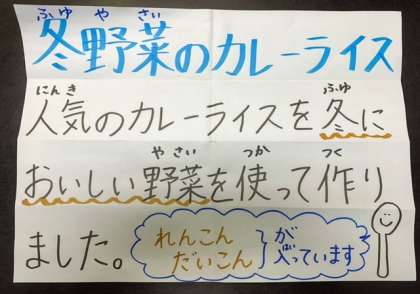 ふゆ や さい
冬野菜のカレーライス
にん き ふゆ
人気のカレーライスを冬に
や さい つか つく
おいしい野菜を使って作り
ました。
れんこん
だいこん
が
入っています